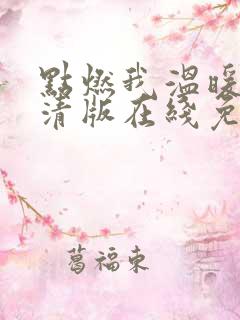 點燃我温暖
清版在綫免
葛福東